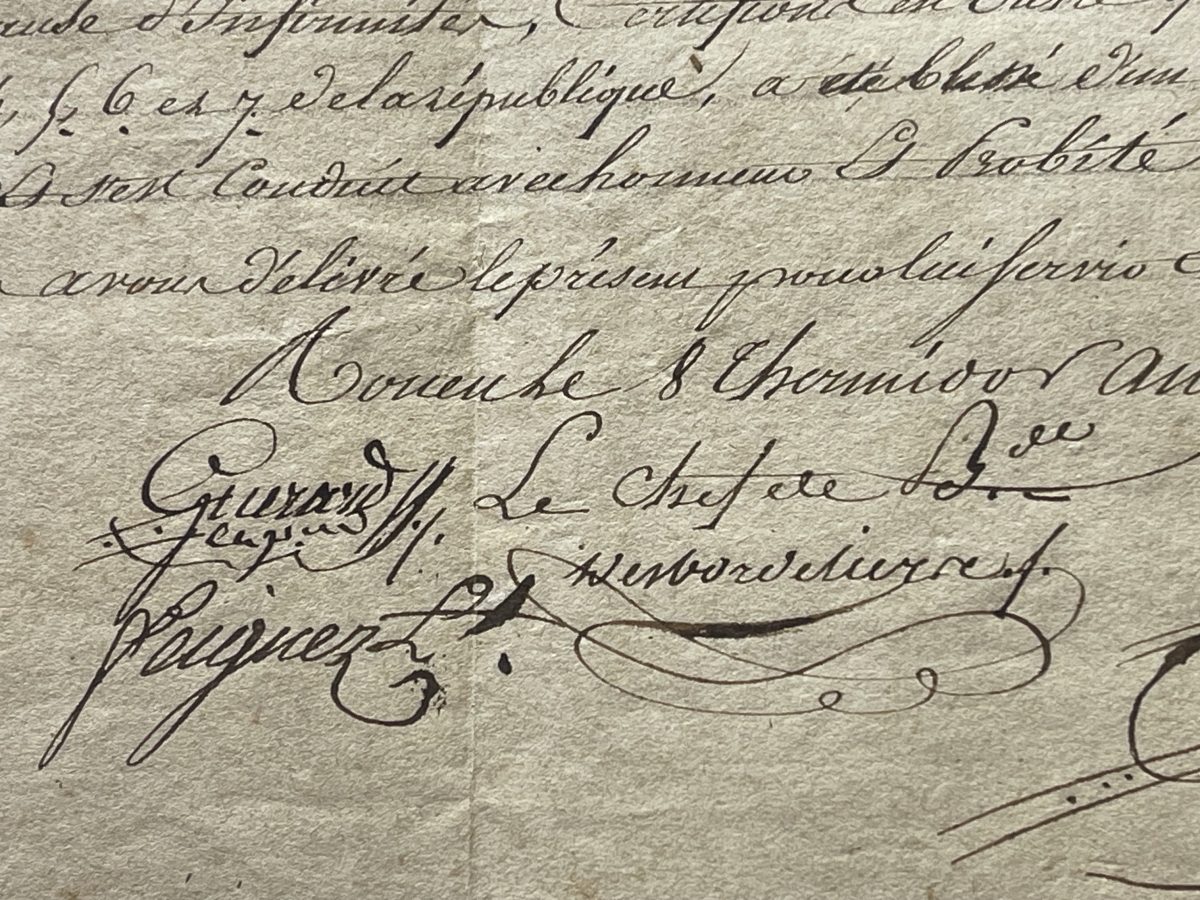 d'Infanterie, Certifions
5. 6 et 7 de la république, a été blessé d'un
Et s'est Conduit avec honneur Et Probité
avons délivré le présent pour lui servir
Rouen le 8 Thermidor An
Guerard Le Chef de Bde
Desbordeliers